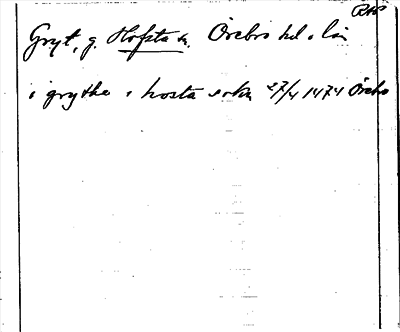 RAP
Gryt, g. Hofsta sn. Örebro hd o län
i grythe i hosta sokn 27/4 1474 Örebro